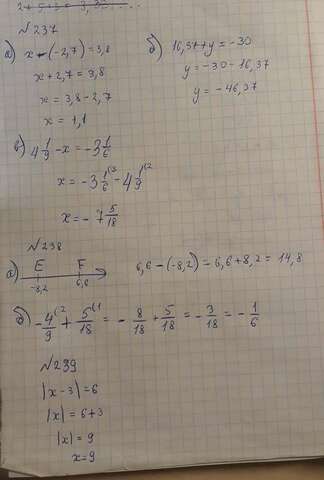 №237
а) x - (-2,7) = 3,8
x + 2,7 = 3,8
x = 3,8 - 2,7
x = 1,1
б) 16,37 + y = -30
y = -30 - 16,37
y = -46,37
в) 4 1/9 - x = -3 1/6
x = -3 1/6 (3 - 4 1/9 (2
x = -7 5/18
№238
а) E F
-8,2 6,6
6,6 - (-8,2) = 6,6 + 8,2 = 14,8
б) -4/9 (2 + 5/18 (1 = -8/18 + 5/18 = -3/18 = -1/6
№239
|x - 3| = 6
|x| = 6 + 3
|x| = 9
x = 9